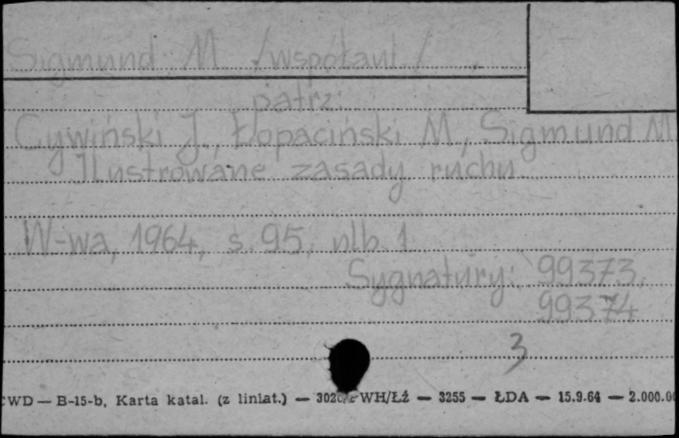 Sigmund M. /współaut./
patrz:
Cywiński J., Łopaciński M., Sigmund M.
Ilustrowane zasady ruchu.
W-wa, 1964, s. 95, nlb. 1
Sygnatury: 99373,
99374
3
CWD — B-15-b, Karta katal. (z liniat.) — WH/Łź — 3255 — ŁDA — 15.9.64 — 2.000.00